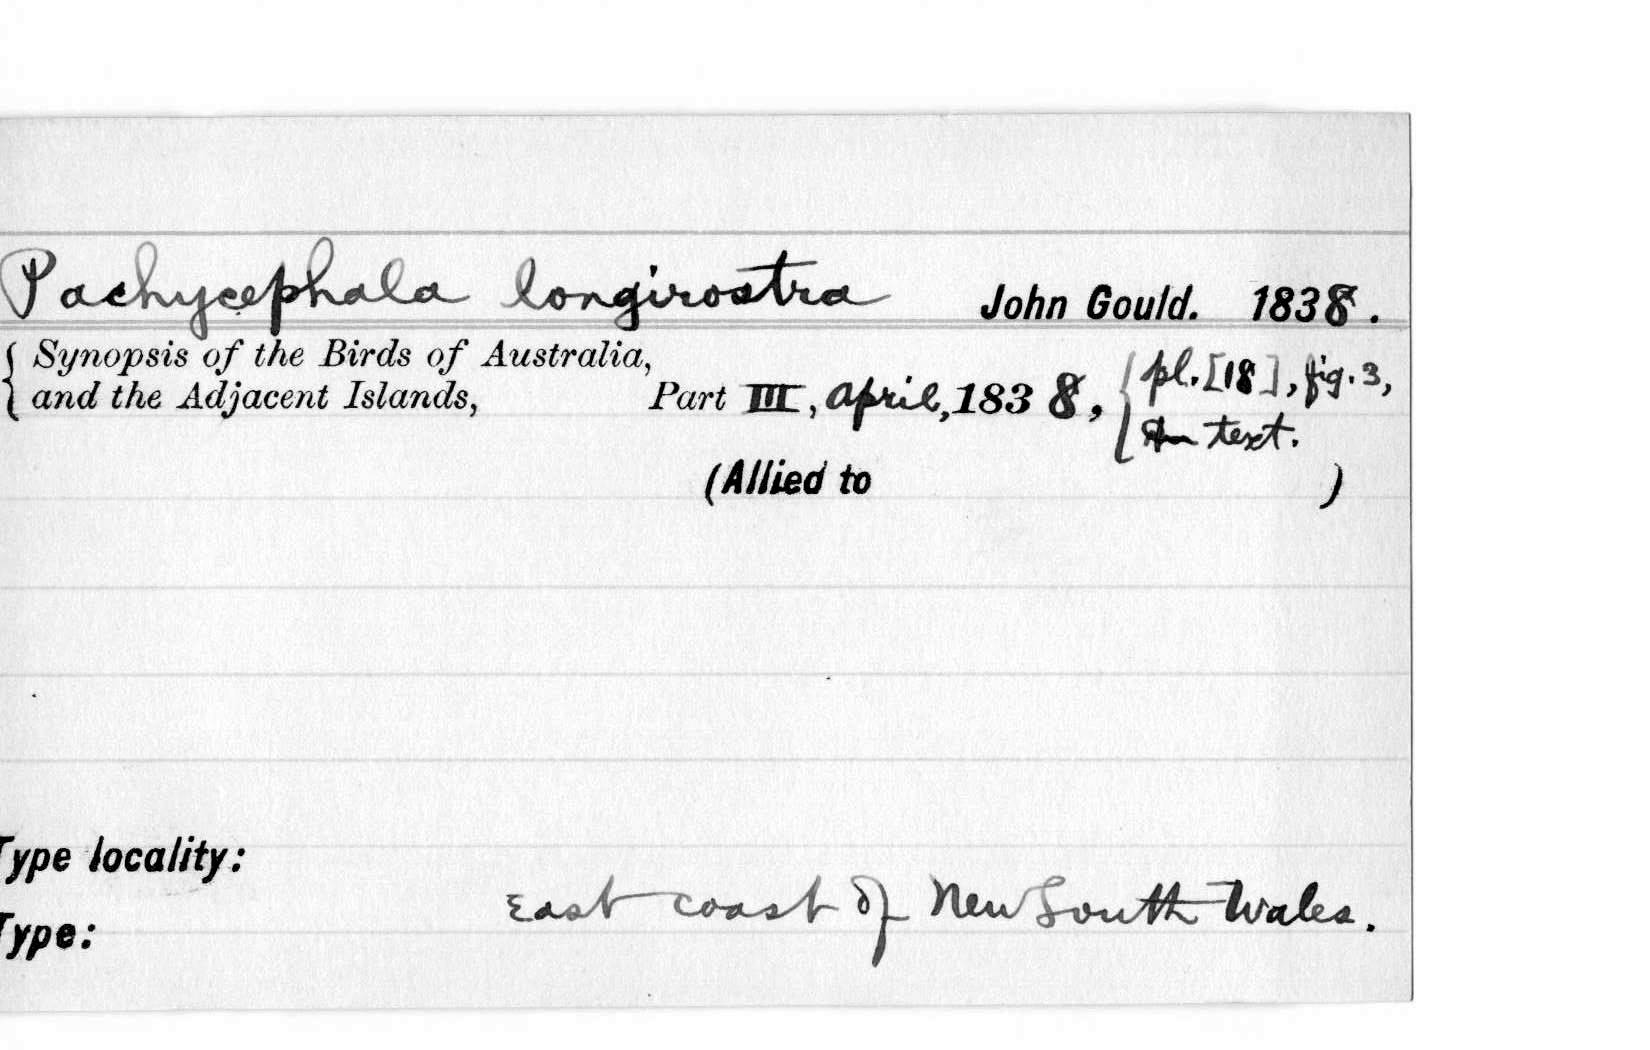 Pachycephala longirostra John Gould. 1838.
{ Synopsis of the Birds of Australia,
and the Adjacent Islands, Part III, April, 1838, { pl. [18], fig. 3,
text.
(Allied to )
Type locality:
East coast of New South Wales.
Type: